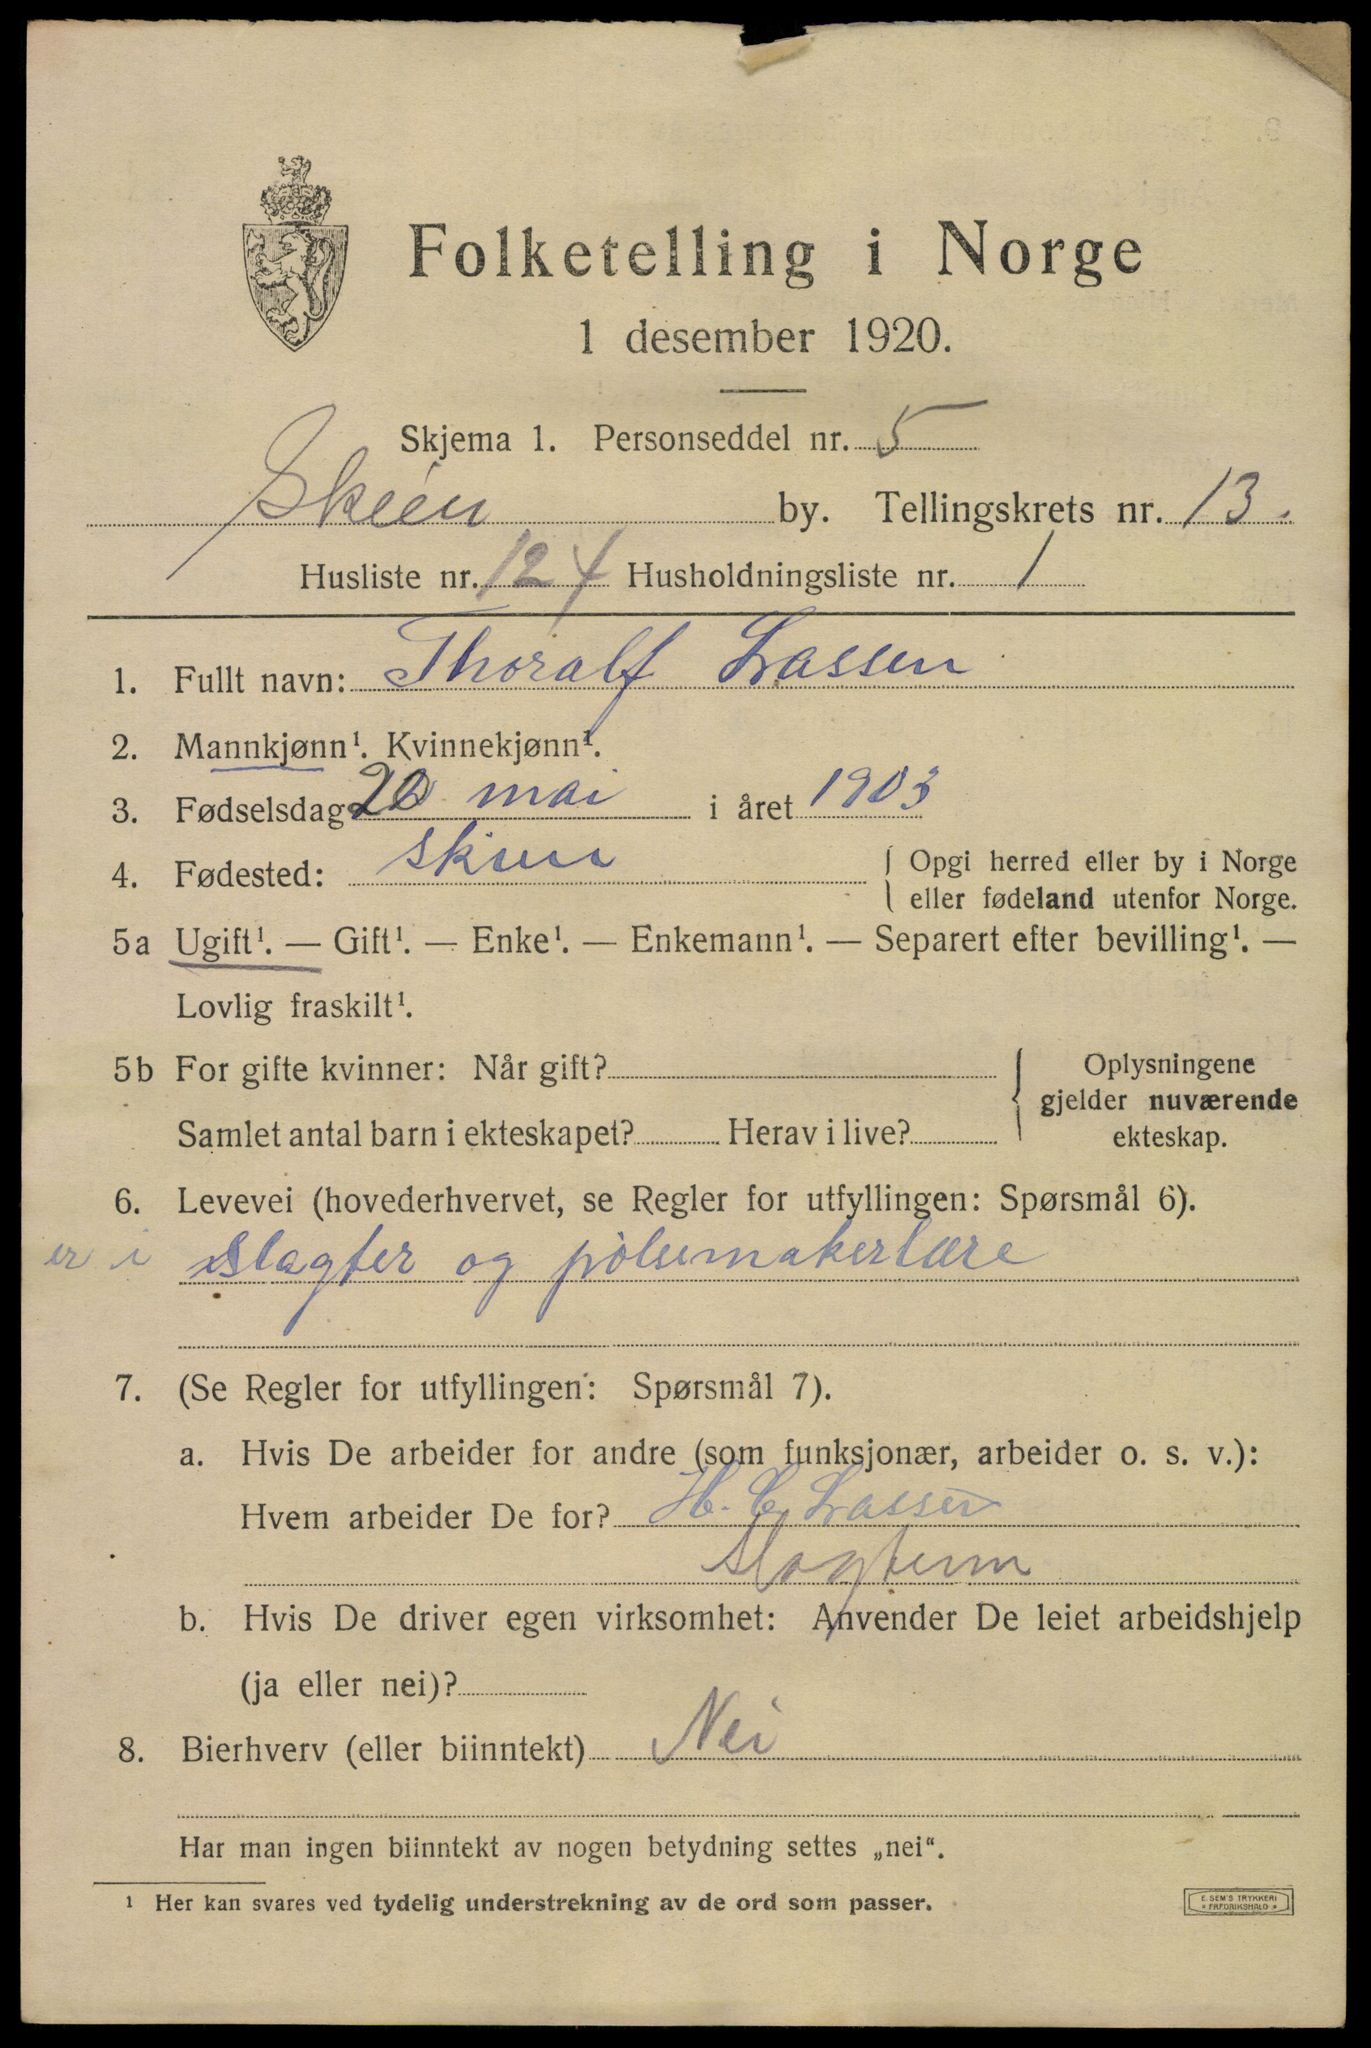 Folketelling i Norge
1 desember 1920.
Skjema 1. Personseddel nr. 5
Skien by. Tellingskrets nr. 13.
Husliste nr. 124 Husholdningsliste nr. 1
1. Fullt navn: Thoralf Lassen
2. Mannkjønn¹. Kvinnekjønn¹.
3. Fødselsdag 20 mai i året 1903
4. Fødested: Skien { Opgi herred eller by i Norge
eller fødeland utenfor Norge.
5a Ugift¹. — Gift¹. — Enke¹. — Enkemann¹. — Separert efter bevilling¹. —
Lovlig fraskilt¹.
5b For gifte kvinner: Når gift? { Oplysningene
gjelder nuværende
Samlet antal barn i ekteskapet? Herav i live? ekteskap.
6. Levevei (hovederhvervet, se Regler for utfyllingen: Spørsmål 6).
er i Slagter og pölsemakerlære
7. (Se Regler for utfyllingen: Spørsmål 7).
a. Hvis De arbeider for andre (som funksjonær, arbeider o. s. v.):
Hvem arbeider De for? H. C. Lassen
b. Hvis De driver egen virksomhet: Anvender De leiet arbeidshjelp
(ja eller nei)?
8. Bierhverv (eller biinntekt) Nei
Har man ingen biinntekt av nogen betydning settes „nei“.
¹ Her kan svares ved tydelig understrekning av de ord som passer.
E. SEM'S TRYKKERI
FREDRIKSHALD